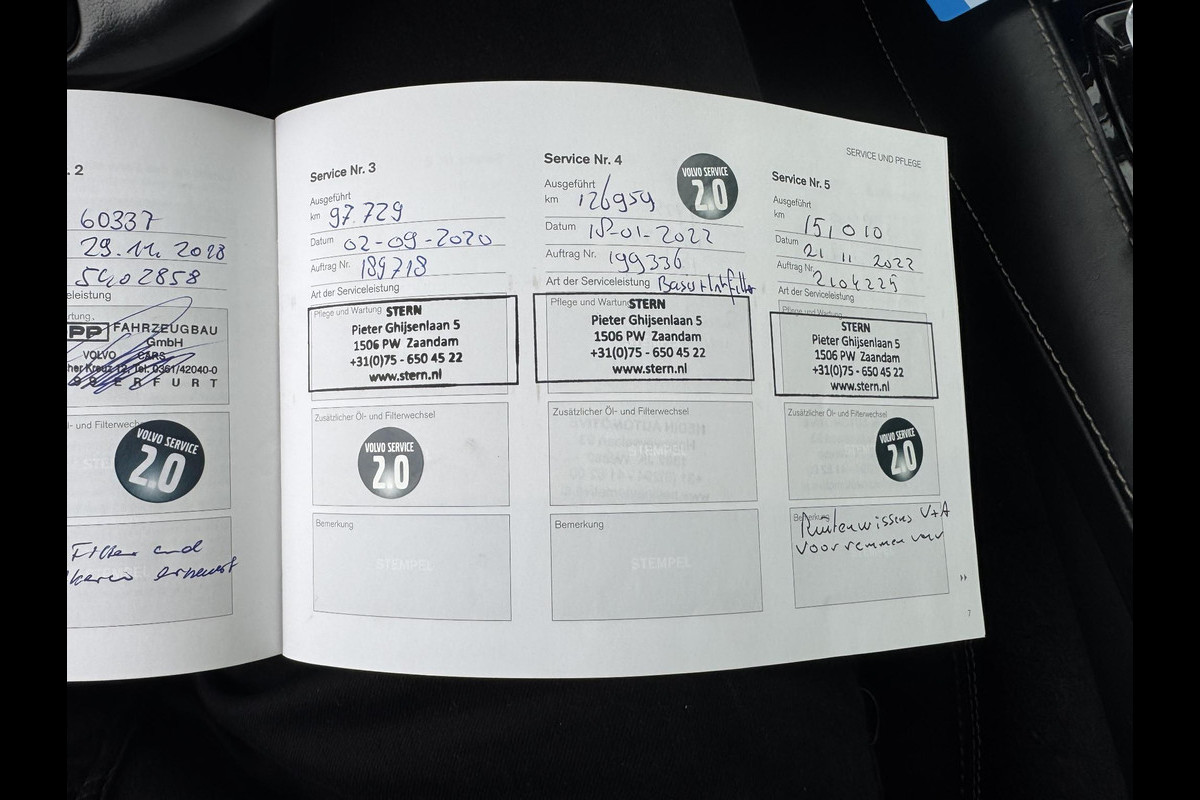 . 2
60337
29.11. 2018
5402858
eleistung
rtung.
PP FAHRZEUGBAU
GmbH
VOLVO CARS
her Kreuz 12, Tel. 0361/42040-0
99 ERFURT
l- und Filterwech
VOLVO SERVICE
2.0
Filter und
erneuert
Service Nr. 3
Ausgeführt
km 97.729
Datum 02-09-2020
Auftrag Nr. 189718
Art der Serviceleistung
Pflege und Wartung STERN
Pieter Ghijsenlaan 5
1506 PW Zaandam
+31(0)75 - 650 45 22
www.stern.nl
Zusätzlicher Öl- und Filterwechsel
VOLVO SERVICE
2.0
Bemerkung
STEMPEL
Service Nr. 4
VOLVO SERVICE
2.0
Ausgeführt
km 126959
Datum 18-01-2022
Auftrag Nr. 199336
Art der Serviceleistung
Pflege und Wartung STERN
Pieter Ghijsenlaan 5
1506 PW Zaandam
+31(0)75 - 650 45 22
www.stern.nl
Zusätzlicher Öl- und Filterwechsel
STEMPEL
Bemerkung
STEMPEL
SERVICE UND PFLEGE
Service Nr. 5
Ausgeführt
km 151,010
Datum 21 11 2022
Auftrag Nr. 2104225
Art der Serviceleistung
Pflege und Wartung
STERN
Pieter Ghijsenlaan 5
1506 PW Zaandam
+31(0)75 - 650 45 22
www.stern.nl
Zusätzlicher Öl- und Filterwechsel
VOLVO SERVICE
2.0
Bemerkung
Ruitenwissers V+A
voorremmen
7